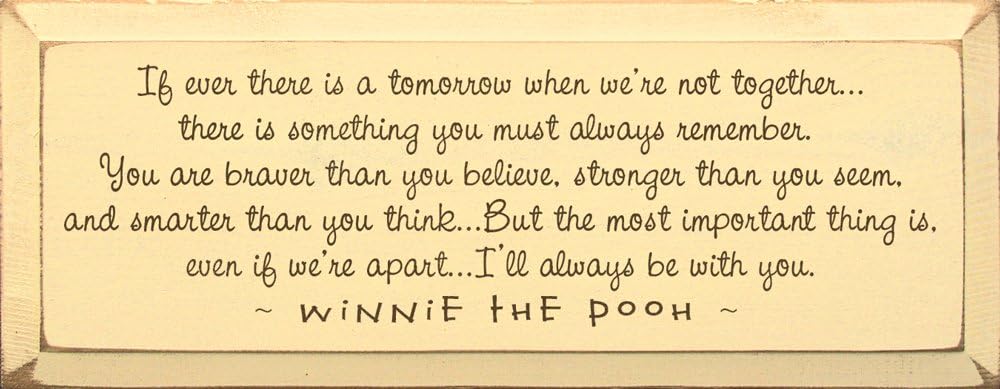 If ever there is a tomorrow when we're not together...
there is something you must always remember.
You are braver than you believe, stronger than you seem,
and smarter than you think...But the most important thing is,
even if we're apart...I'll always be with you.
~ WiNNiE tHE POOH ~